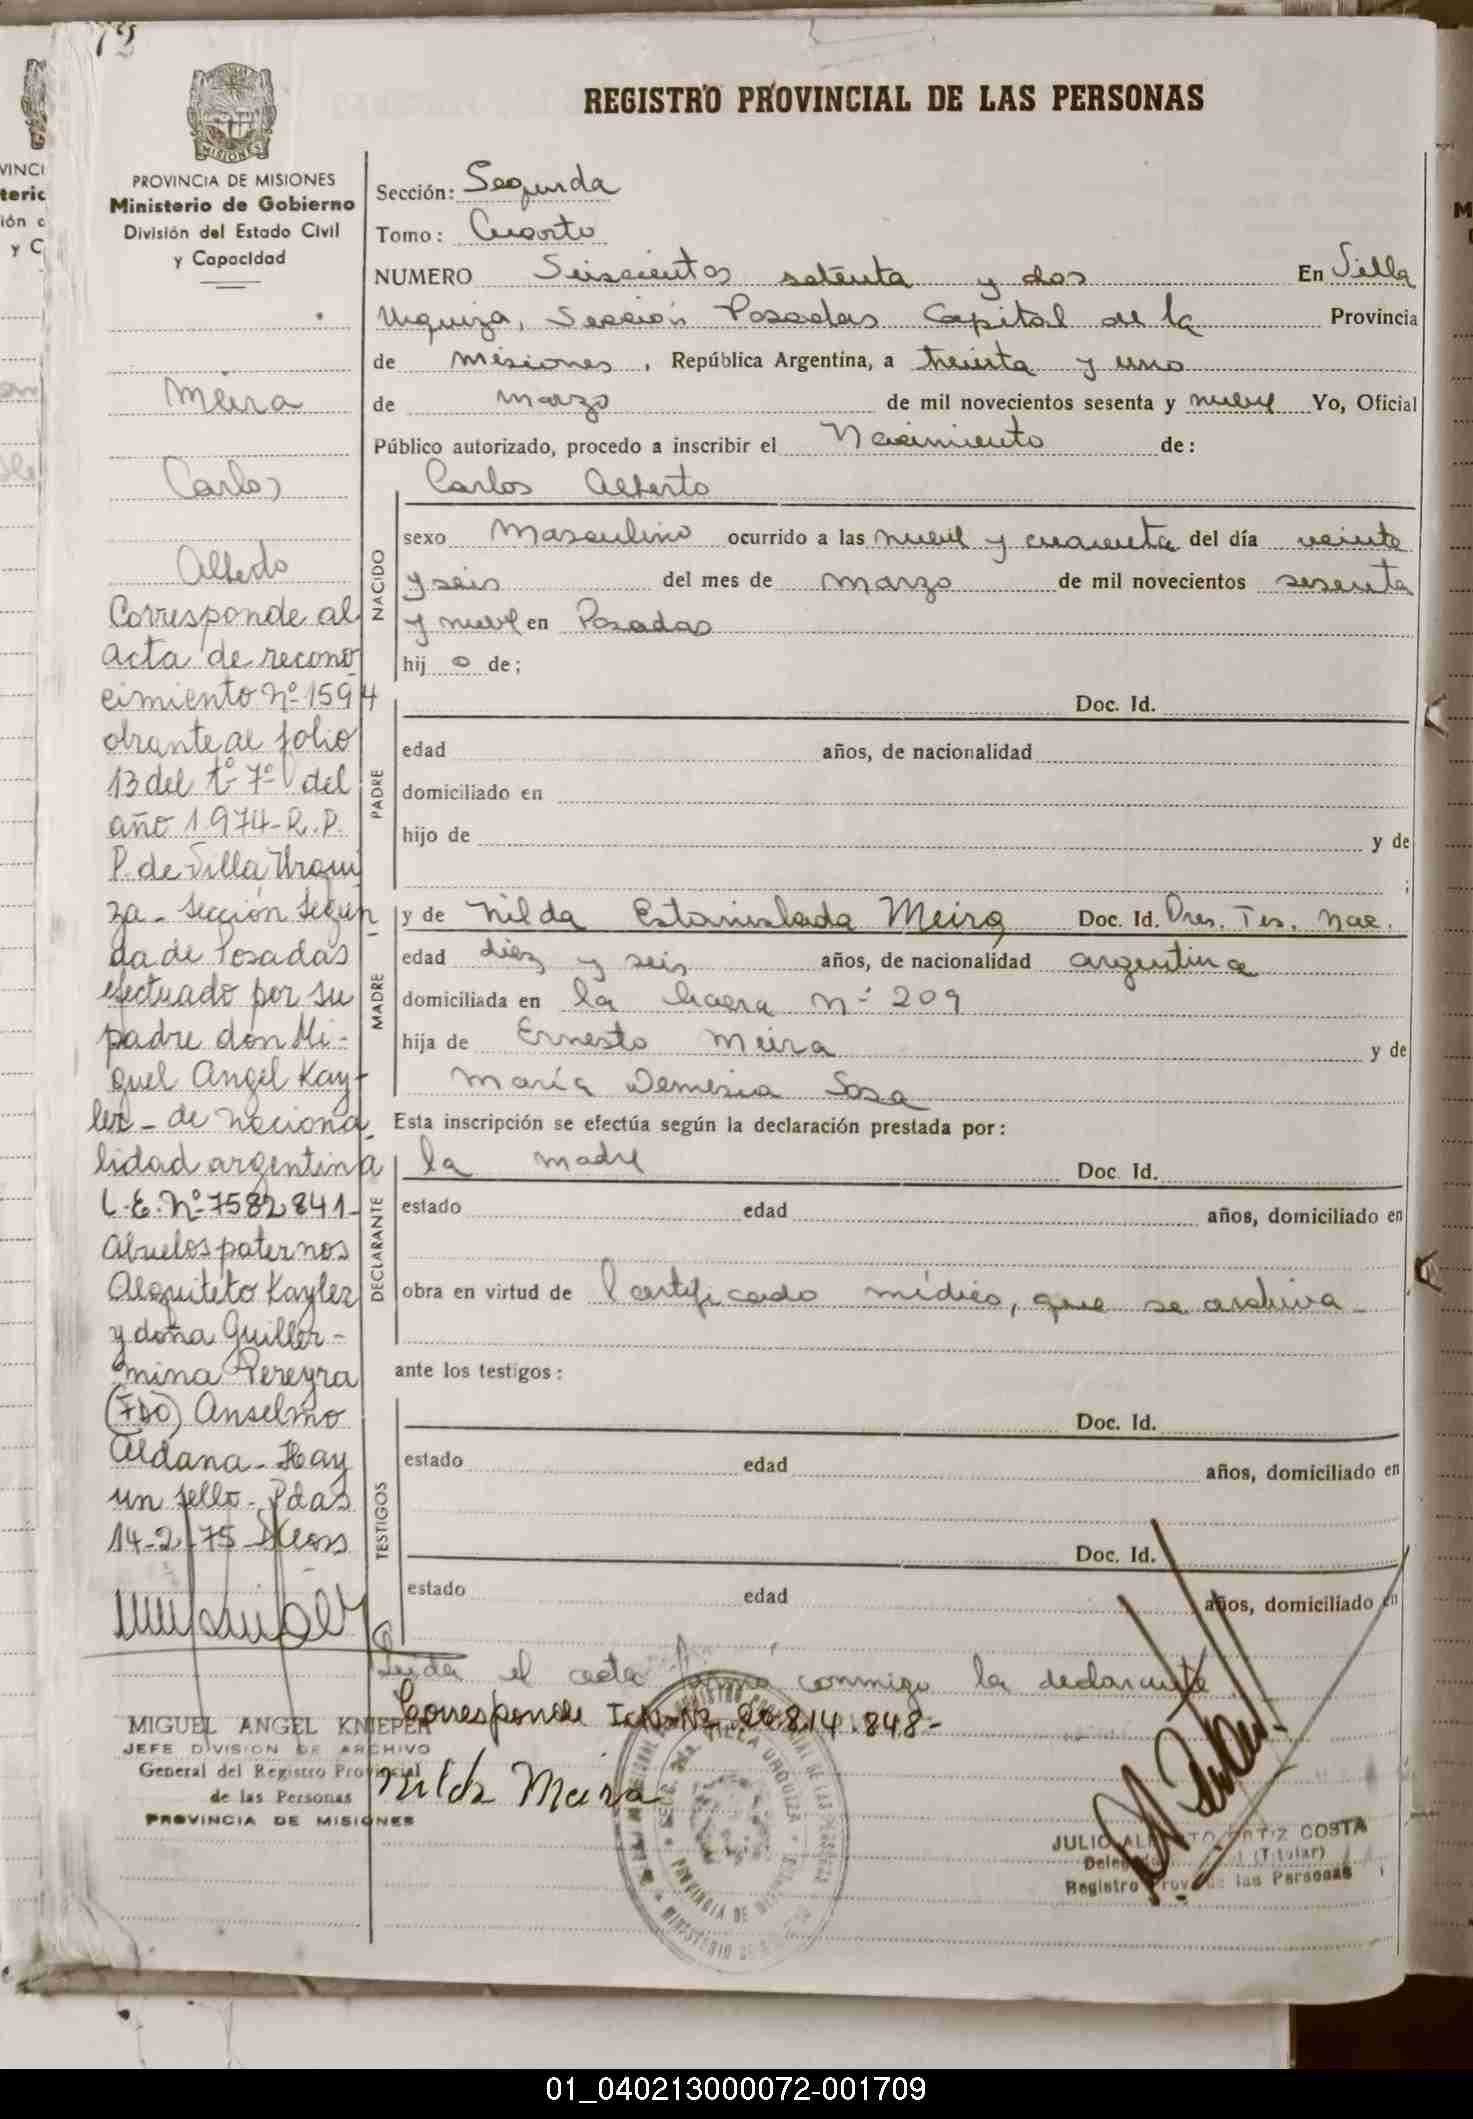 REGISTRO PROVINCIAL DE LAS PERSONAS
MISIONES
PROVINCIA DE MISIONES
Ministerio de Gobierno
División del Estado Civil
y Capacidad
Meira
Carlos
Alberto
Corresponde al
acta de recono
cimiento Nº 1594
obrante al folio
13 del tº 7º del
año 1974 - R. P.
P. de Villa Urqui
za - Sección Segun
da de Posadas
efectuado por su
padre don Mi-
guel Angel Kay-
ler - de naciona
lidad argentina
L. E. Nº 7582841-
Abuelos paternos
Kayler
y doña Guiller-
mina Pereyra
(FDO) Anselmo
Aldana - Hay
un sello - Pdas
14-2-75
MIGUEL ANGEL KNIEPER
JEFE DIVISION DE ARCHIVO
General del Registro Provincial
de las Personas
PROVINCIA DE MISIONES
Sección: Segunda
Tomo: Cuarto
NUMERO Seiscientos setenta y dos En Villa
Urquiza, Sección Posadas Capital de la Provincia
de Misiones, República Argentina, a treinta y uno
de marzo de mil novecientos sesenta y nueve Yo, Oficial
Público autorizado, procedo a inscribir el Nacimiento de:
NACIDO
Carlos Alberto
sexo Masculino ocurrido a las nueve y cuarenta del día veinte
y seis del mes de marzo de mil novecientos sesenta
y nueve en Posadas
hijo de;
PADRE
Doc. Id.
edad años, de nacionalidad
domiciliado en
hijo de y de
;
MADRE
y de Nilda Estanislada Meira Doc. Id. Pres. Tes. Nac.
edad diez y seis años, de nacionalidad argentina
domiciliada en la Nº 209
hija de Ernesto Meira y de
María Demesia Sosa
Esta inscripción se efectúa según la declaración prestada por:
DECLARANTE
la madre Doc. Id.
estado edad años, domiciliado en
obra en virtud de Certificado médico, que se archiva -
ante los testigos:
TESTIGOS
Doc. Id.
estado edad años, domiciliado en
Doc. Id.
estado edad años, domiciliado en
Leida el acta firma conmigo la declarante
Corresponde 20.814.848-
Nilda Meira
VILLA URQUIZA
PROVINCIA DE MISIONES
JULIO ALBERTO ORTIZ COSTA
(Titular)
Registro Prov. de las Personas
01_040213000072-001709